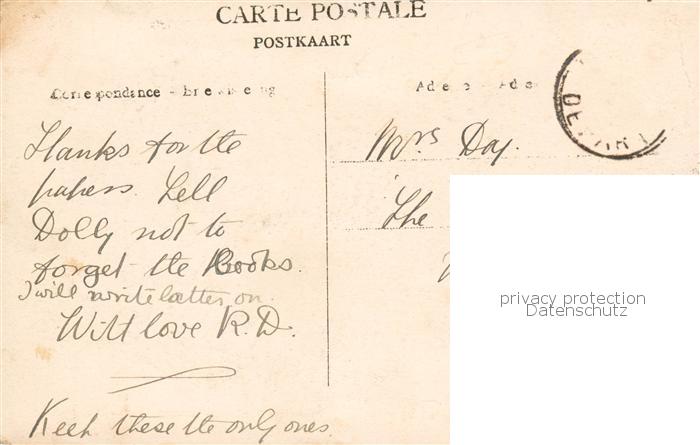 CARTE POSTALE
POSTKAART
Correspondance - Briefwisseling
Thanks for the
papers. Tell
Dolly not to
forget the Books.
I will write latter on.
With love R. D.
Keep these the only ones.
Mrs Day.
The
DEPART
privacy protection
Datenschutz